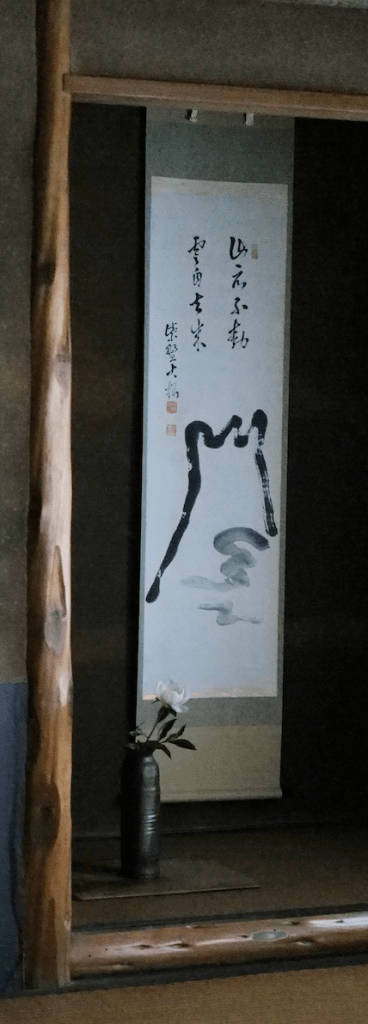 山元不動
雲自去来
紫野